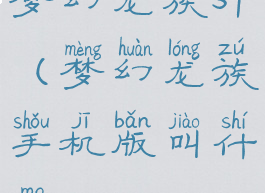 梦幻龙族
mèng huàn lóng zú
(梦幻龙族
shǒu jī bǎn jiào shí
手机版叫什